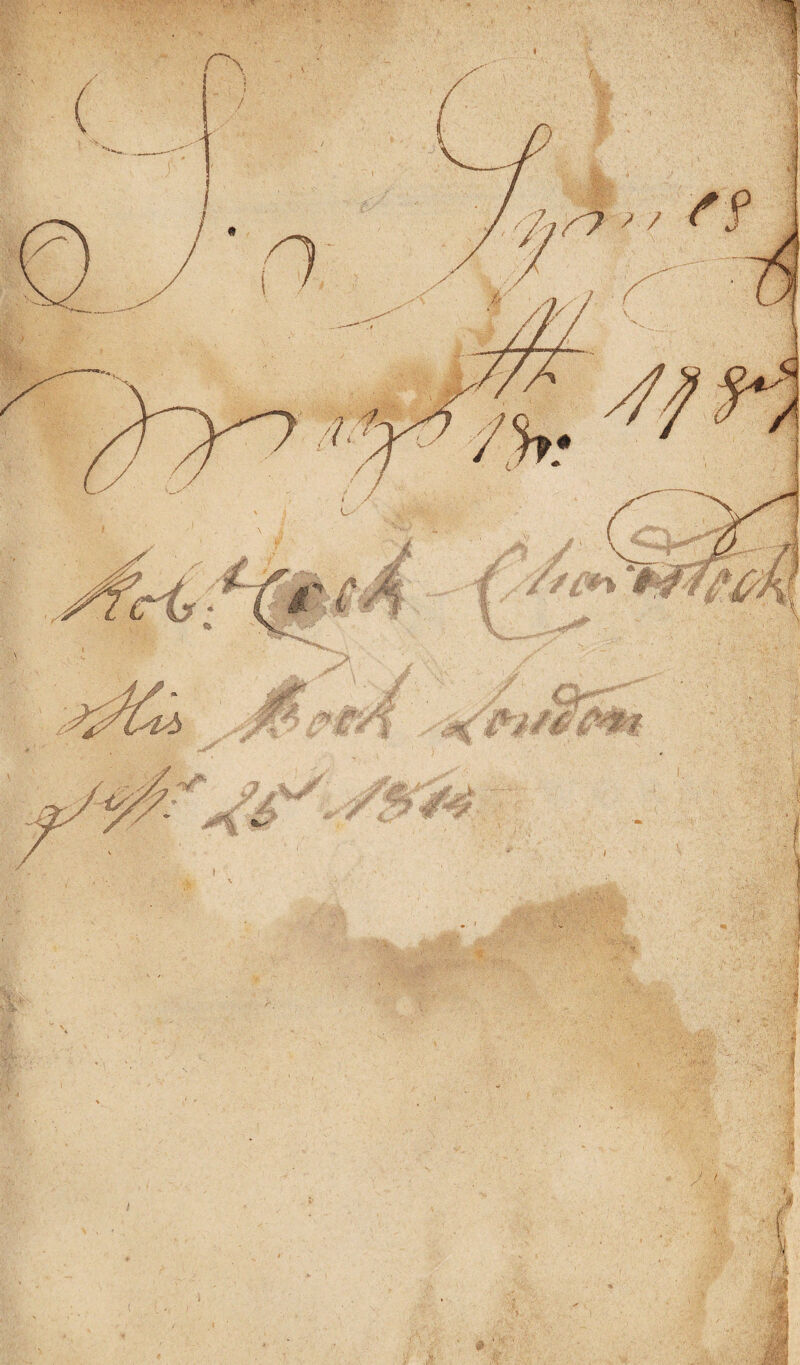 S. Symes
May 18th 178
Robt: Cook Chardstock
His Book London
Sepr: 25 18